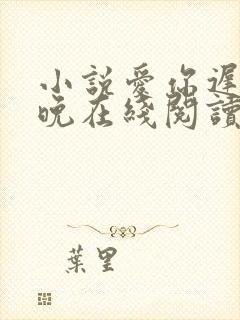 小説愛你遲
晚在綫閱讀
葉里